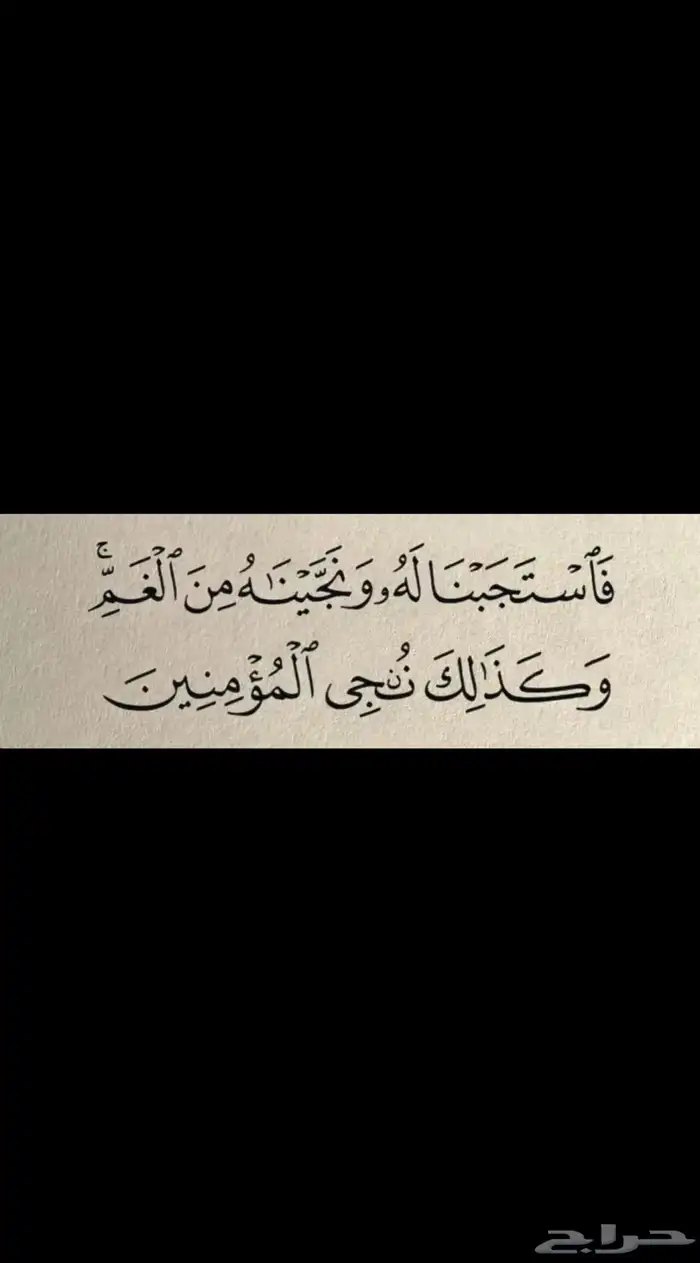 فَٱسۡتَجَبۡنَا لَهُۥ وَنَجَّيۡنَٰهُ مِنَ ٱلۡغَمِّۚ
وَكَذَٰلِكَ نُـۨجِي ٱلۡمُؤۡمِنِينَ
حراج